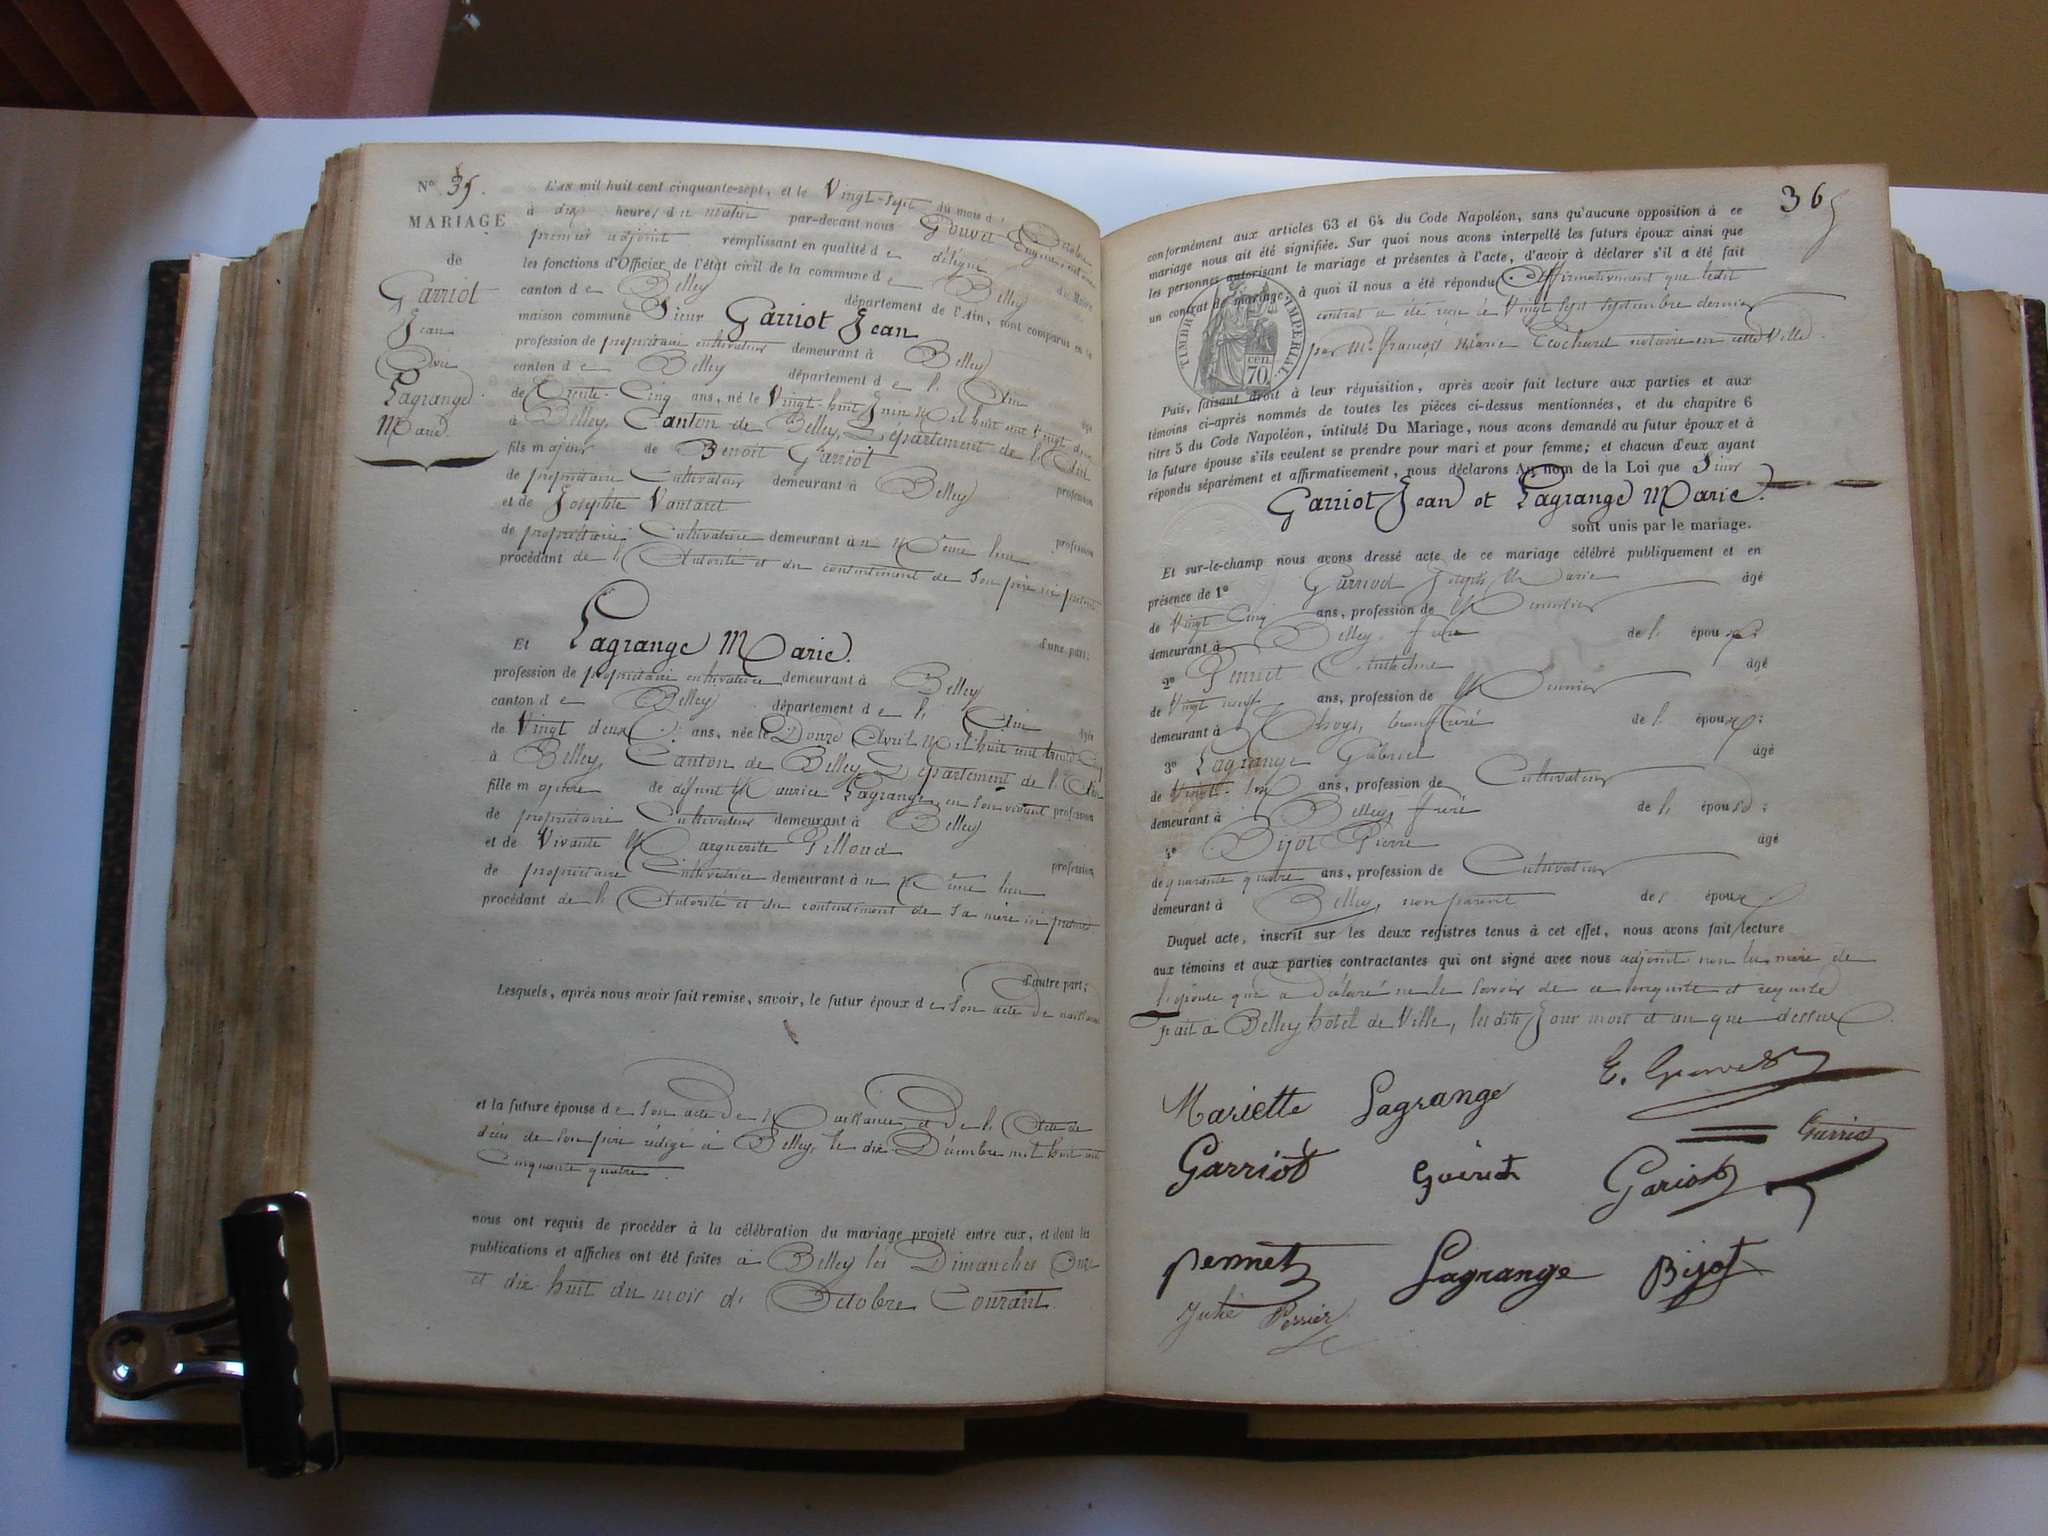 N° 35.
MARIAGE
de
Garriot
Jean
Avec
Lagrange
Marie.
L'AN mil huit cent cinquante-sept, et le Vingt-sept du mois d' Octobre
à dix heures du matin par-devant nous Gouvet
premier adjoint remplissant en qualité de délégué du Maire
les fonctions d'Officier de l'état civil de la commune de Belley
canton de Belley département de l'Ain, sont comparus en la
maison commune Sieur Garriot Jean
profession de propriétaire cultivateur demeurant à Belley
canton de Belley département de l'Ain âgé
de Trente-Cinq ans, né le Vingt-huit Juin Mil huit cent vingt deux
à Belley, Canton de Belley, Département de l'Ain
fils majeur de Benoit Garriot profession
de propriétaire Cultivateur demeurant à Belley
et de Josephte Vautaret profession
de propriétaire Cultivatrice demeurant au Même lieu
procédant de l'Autorité et du consentement de son père ici présent
d'une part;
Et Lagrange Marie.
profession de propriétaire cultivatrice demeurant à Belley
canton de Belley département de l'Ain âgée
de Vingt deux ans, née le Douze Avril Mil huit cent trente-Cinq
à Belley, Canton de Belley, Département de l'Ain
fille majeure de défunt Maurice Lagrange, en son vivant profession
de propriétaire Cultivateur demeurant à Belley
et de Vivante Marguerite Pilloud profession
de propriétaire Cultivatrice demeurant au Même lieu
procédant de l'Autorité et du consentement de sa mère ici présente
d'autre part;
Lesquels, après nous avoir fait remise, savoir, le futur époux de son acte de naissance
et la future épouse de son acte de Naissance, et de l'Acte de
décès de son père rédigé à Belley, le dix Décembre mil huit cent
Cinquante quatre
nous ont requis de procéder à la célébration du mariage projeté entre eux, et dont les
publications et affiches ont été faites à Belley les Dimanches Onze
et dix-huit du mois d'Octobre Courant.
36
conformément aux articles 63 et 64 du Code Napoléon, sans qu'aucune opposition à ce
mariage nous ait été signifiée. Sur quoi nous avons interpellé les futurs époux ainsi que
les personnes autorisant le mariage et présentes à l'acte, d'avoir à déclarer s'il a été fait
un contrat de mariage; à quoi il nous a été répondu Affirmativement que ledit
contrat a été reçu le Vingt Sept septembre dernier
par Me François Marie Trochard notaire en cette Ville.
TIMBRE IMPERIAL
70 cen
Puis, faisant droit à leur réquisition, après avoir fait lecture aux parties et aux
témoins ci-après nommés de toutes les pièces ci-dessus mentionnées, et du chapitre 6
titre 5 du Code Napoléon, intitulé Du Mariage, nous avons demandé au futur époux et à
la future épouse s'ils veulent se prendre pour mari et pour femme; et chacun d'eux ayant
répondu séparément et affirmativement, nous déclarons Au nom de la Loi que Sieur
Garriot Jean et Lagrange Marie.
sont unis par le mariage.
Et sur-le-champ nous avons dressé acte de ce mariage célébré publiquement et en
présence de 1° Garriot Joseph Marie âgé
de Vingt Cinq ans, profession de Menuisier
demeurant à Belley, frère de l'époux;
2° Pennet Anthelme âgé
de Vingt neuf ans, profession de Meunier
demeurant à Thoys, beau frère de l'époux;
3° Lagrange Gabriel âgé
de Vingt- ans, profession de Cultivateur
demeurant à Belley, frère de l'épouse;
4° Bijot Pierre âgé
de quarante quatre ans, profession de Cultivateur
demeurant à Belley, non parent des époux
Duquel acte, inscrit sur les deux registres tenus à cet effet, nous avons fait lecture
aux témoins et aux parties contractantes qui ont signé avec nous adjoint non la mère de
l'épouse qui a déclaré ne le savoir de ce enquise et requise
fait à Belley hôtel de Ville, lesdits Jour mois et an que dessus.
Mariette Lagrange E. Gouvet
Garriot Garriot
Gariot
Pennet Lagrange Bijot
Julie Perrier